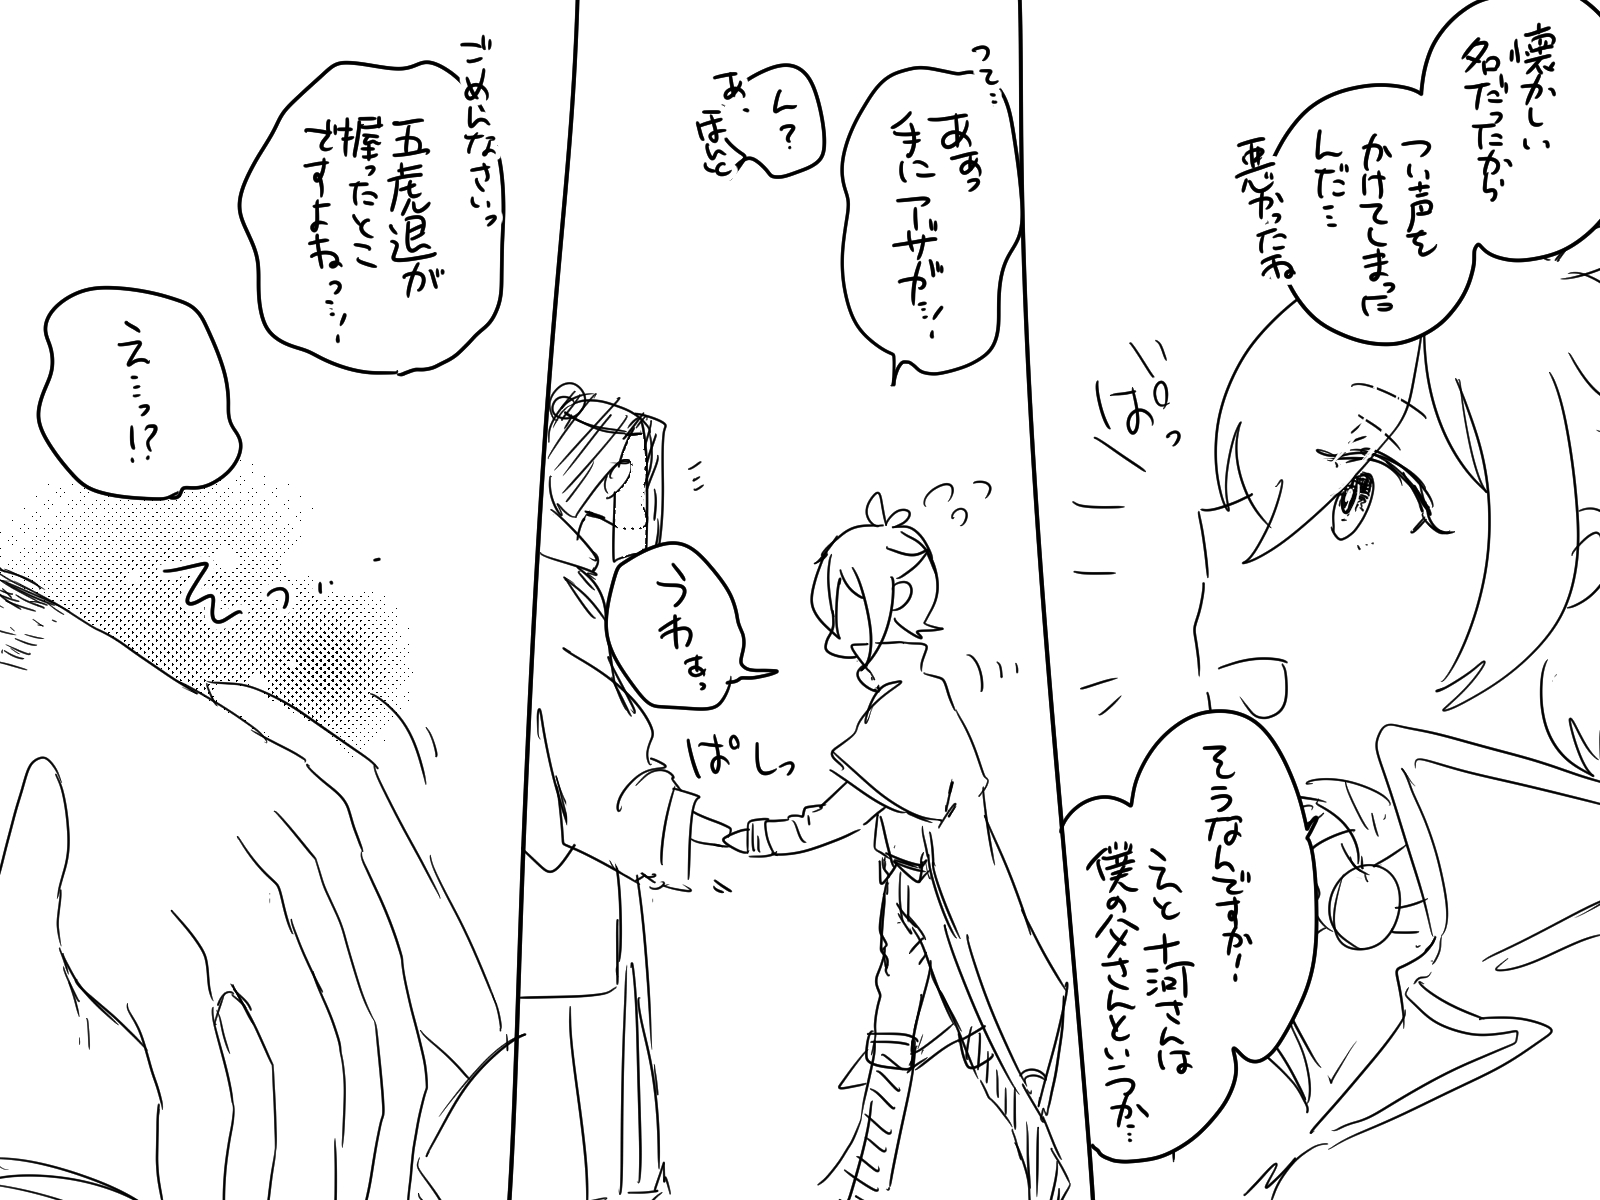 懐かしい
名だったから
つい声を
かけてしまった
んだ…
悪かったね
ぱっ
そうなんですか!
えと十河さんは
僕の父さんというか…
って…
ああっ
手にアザが…!
ん?
あ、
ほんと
うわぁっ
ぱしっ
ごめんなさいっ
五虎退が
握ったとこ
ですよねっ…!
え…っ!?
そっ…